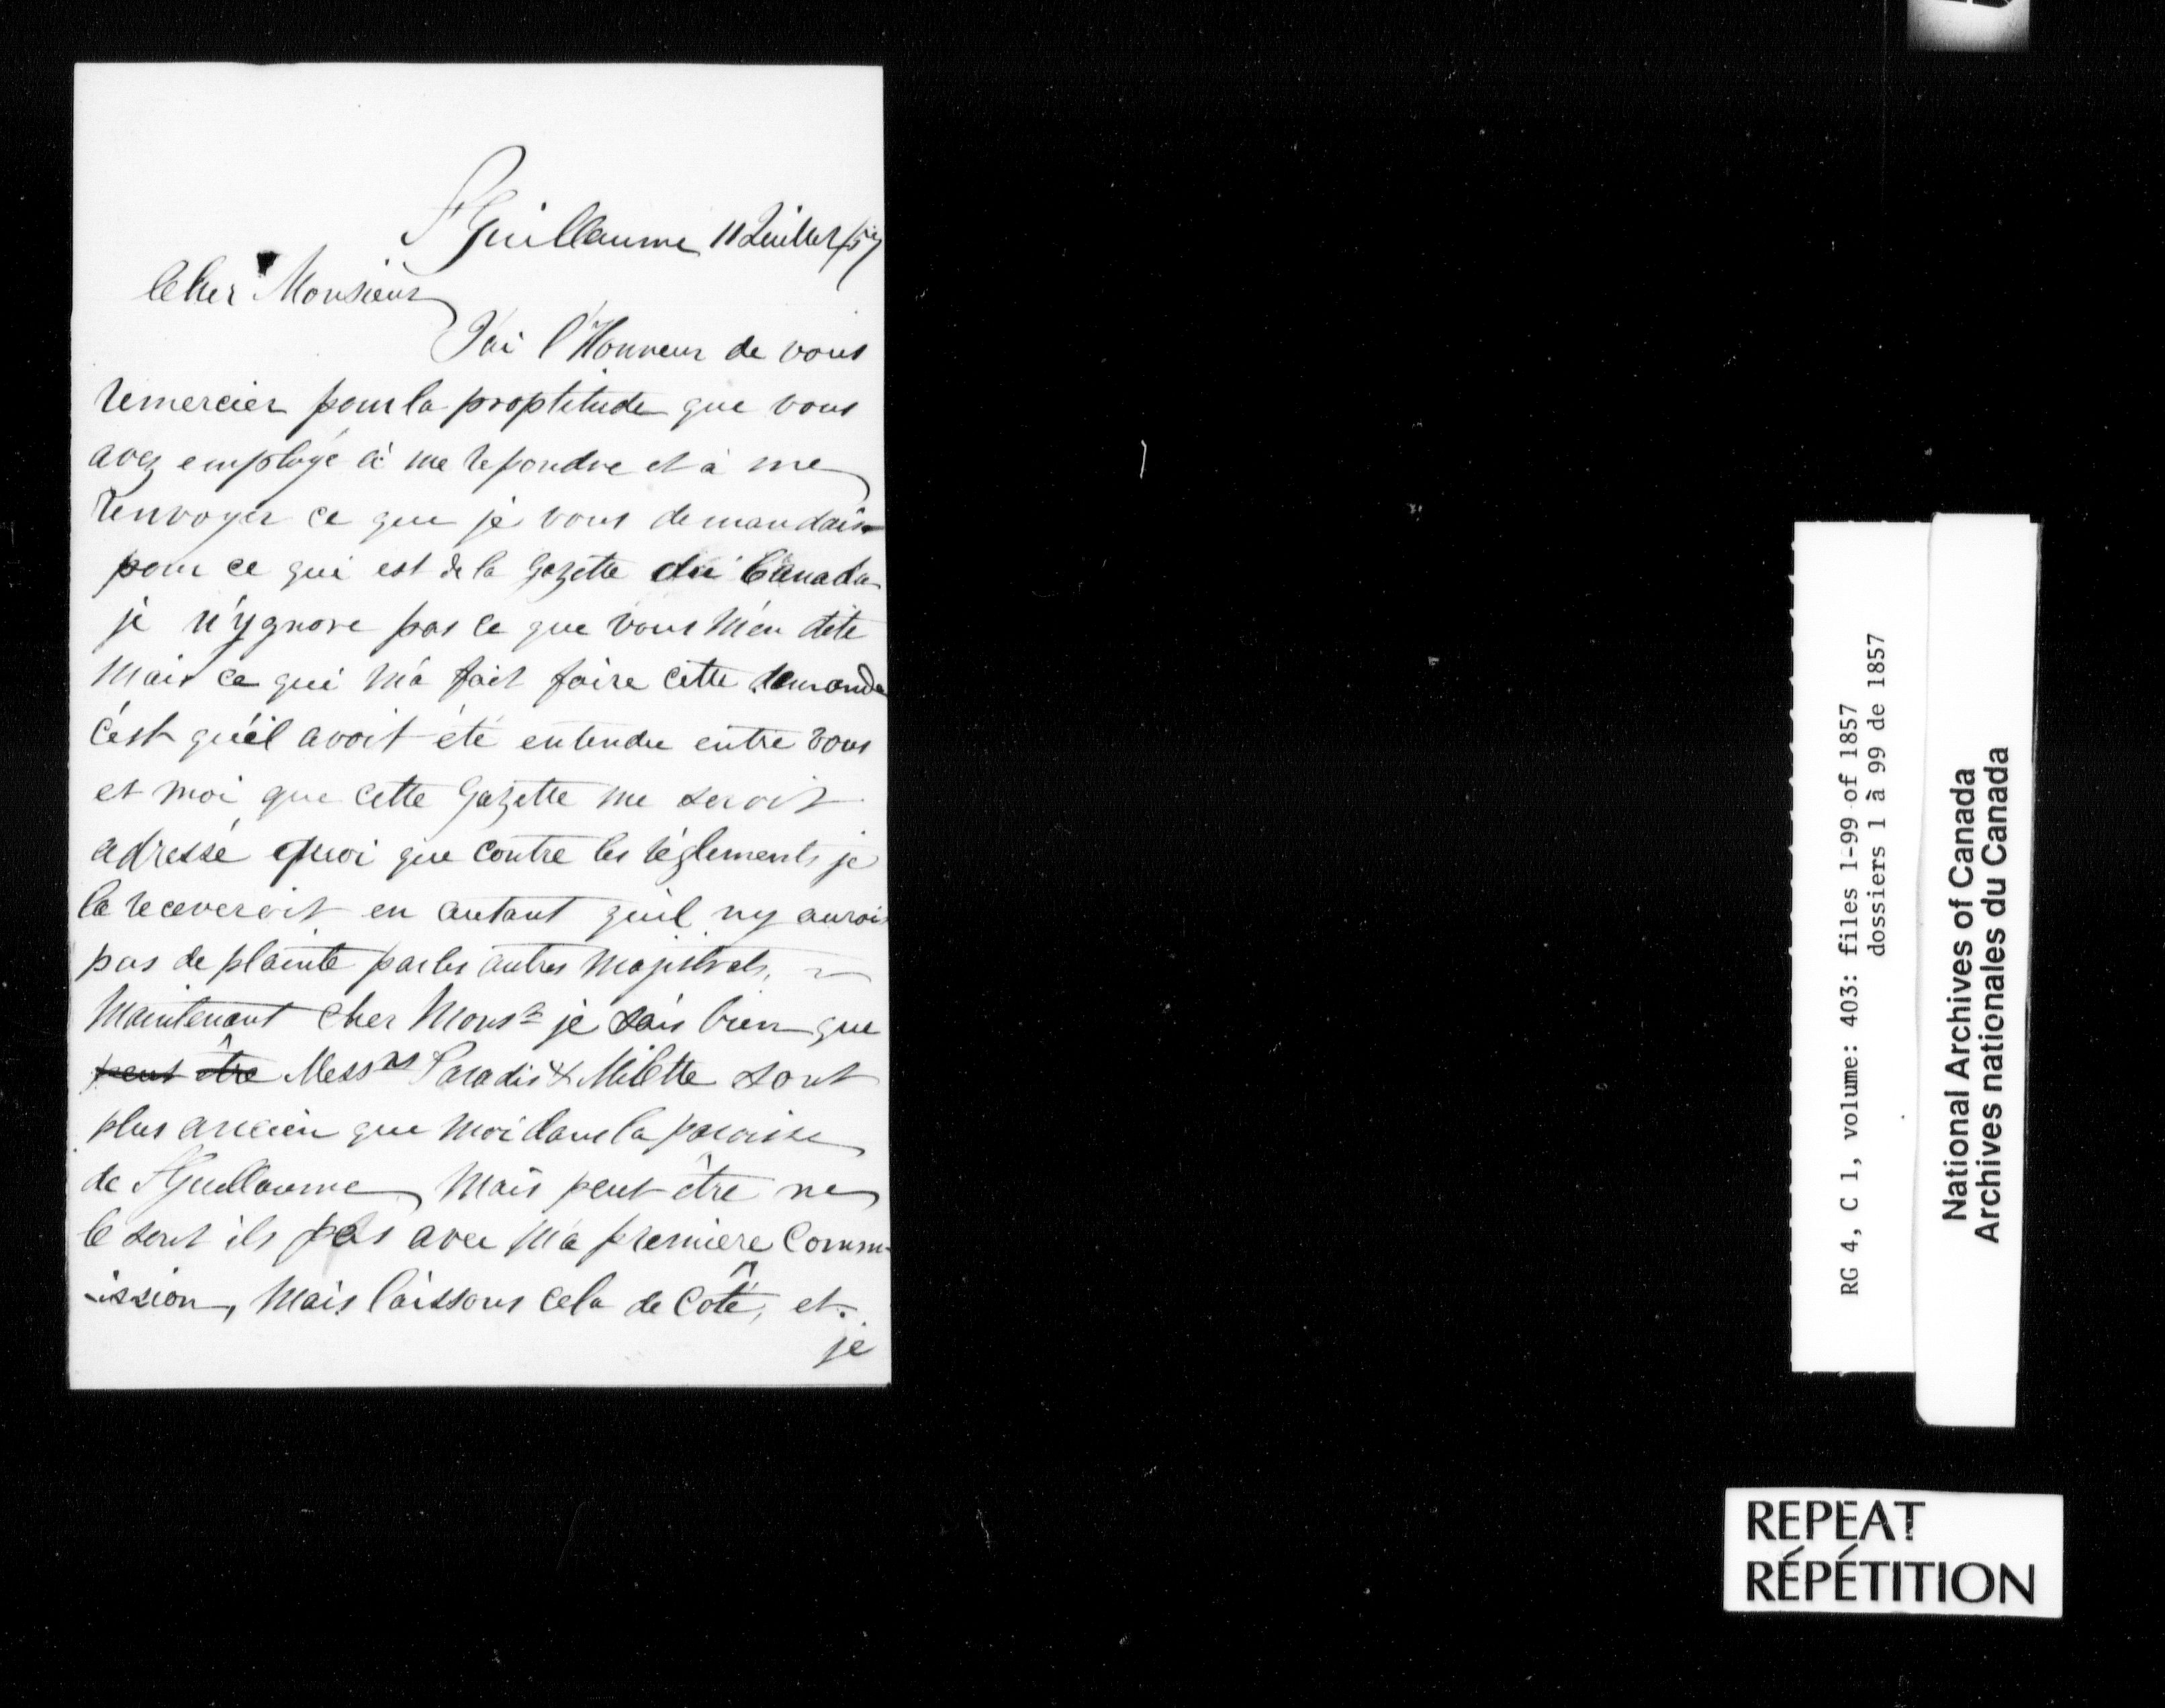 St Guillaume 11 Juillet /57
Cher Monsieur
J'ai l'Honneur de vous
remercier pour la proptitude que vous
avez employé à me repondre et à me
renvoyer ce que je vous demandais
pour ce qui est de la Gazette du Canada
je n'ygnore pas ce que vous m'en dite
Mais ce qui m'a fait faire cette demande
c'est qu'il avoit été entendu entre vous
et moi que cette Gazette me seroit
adressé quoi que contre les réglements je
la receveroit en autant quil ny auroit
pas de plainte par les autres Magistrats,
Maintenant Cher Monsr je sais bien que
peut être Messrs Paradis & Milette sont
plus ancien que moi dans la paroisse
de St Guillaume Mais peut-être ne
le sont ils pas avec ma première Comm-
-ission, Mais laissons cela de Coté, et
je
RG 4, C 1, volume: 403: files 1-99 of 1857
dossiers 1 à 99 de 1857
National Archives of Canada
Archives nationales du Canada
REPEAT
RÉPÉTITION